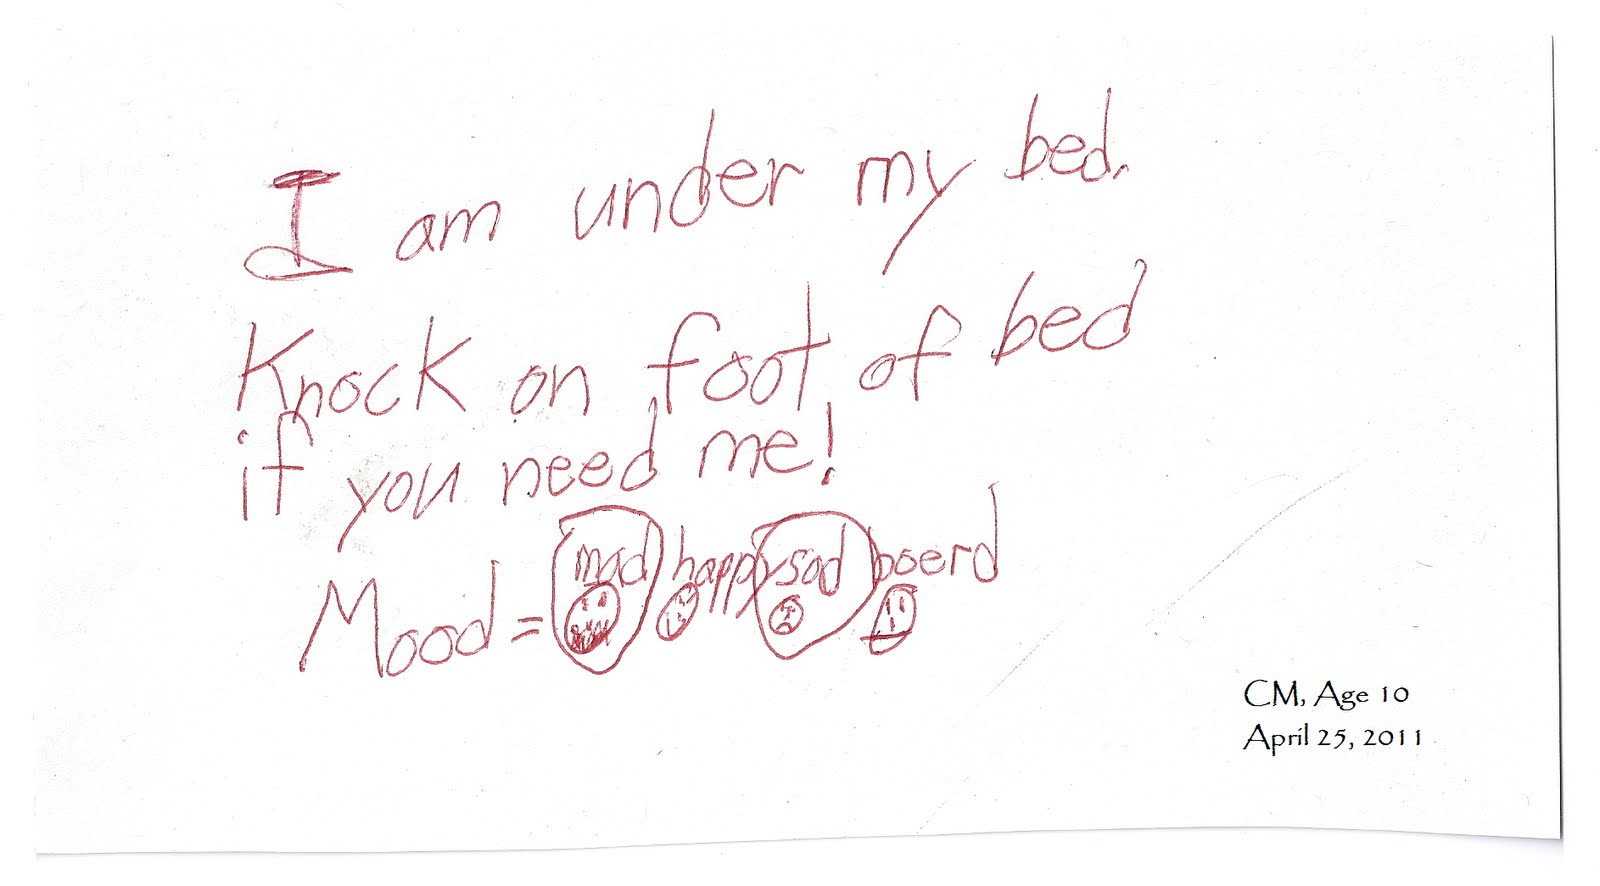 I am under my bed.
Knock on foot of bed
if you need me!
mad happy sad boerd
Mood =
CM, Age 10
April 25, 2011